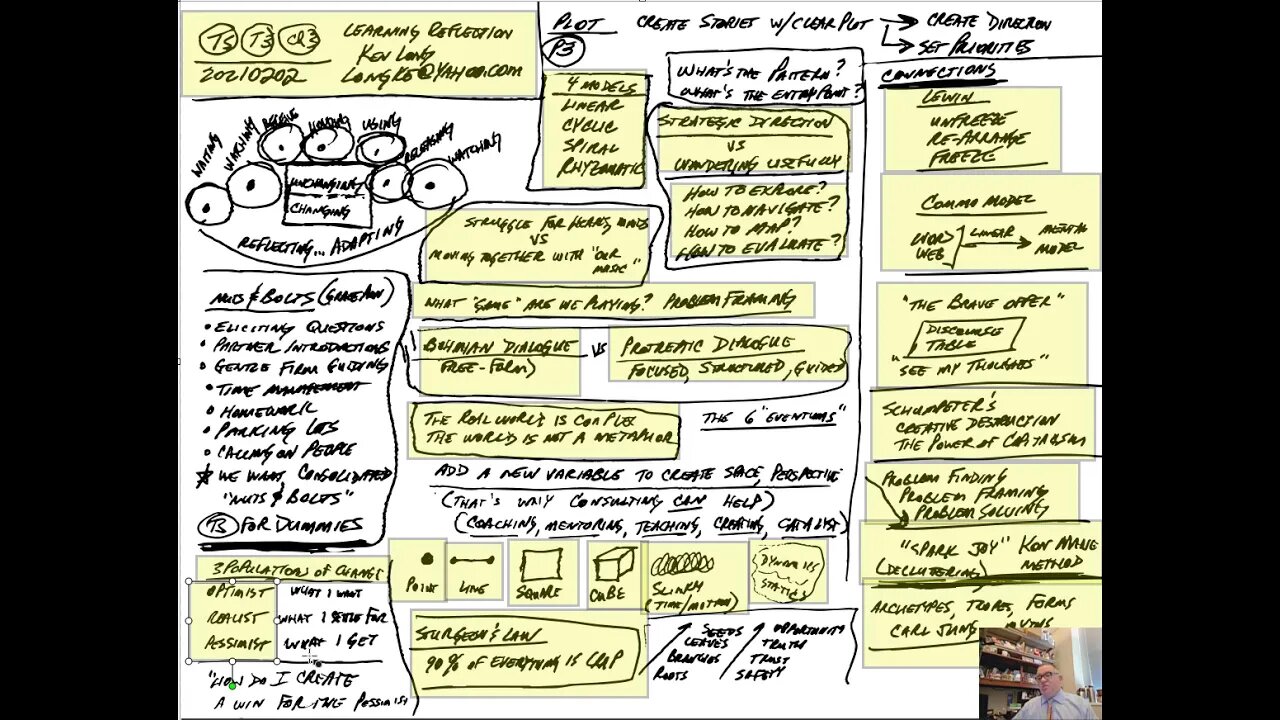 T5 T3 CR3
LEARNING REFLECTION
KEN LONG
20210202
LONGKE@YAHOO.COM
WAITING
WATCHING
RECEIVE
HOLDING
USING
RELEASING
WATCHING
UNCHANGING
CHANGING
REFLECTING... ADAPTING
NUTS & BOLTS (GRACEANN)
• ELICITING QUESTIONS
• PARTNER INTRODUCTIONS
• GENTLE FIRM GUIDING
• TIME MANAGEMENT
• HOMEWORK
• PARKING LOTS
• CALLING ON PEOPLE
WE WANT CONSOLIDATED
"NUTS & BOLTS"
T3 FOR DUMMIES
3 POPULATIONS OF CHANGE
OPTIMIST WHAT I WANT
REALIST WHAT I SETTLE FOR
PESSIMIST WHAT I GET
"HOW DO I CREATE
A WIN FOR THE PESSIMIST
PLOT CREATE STORIES W/CLEAR PLOT
CREATE DIRECTION
SET PRIORITIES
P3
4 MODELS
LINEAR
CYCLIC
SPIRAL
RHYZOMATIC
WHAT'S THE PATTERN?
WHAT'S THE ENTRY POINT?
STRATEGIC DIRECTION
VS
WANDERING USEFULLY
HOW TO EXPLORE?
HOW TO NAVIGATE?
HOW TO MAP?
HOW TO EVALUATE?
STRUGGLE FOR HEARTS, MINDS
VS
MOVING TOGETHER WITH "OUR
MUSIC"
WHAT "GAME" ARE WE PLAYING? PROBLEM FRAMING
BOHMIAN DIALOGUE
FREE-FORM)
VS
PROTREPTIC DIALOGUE
FOCUSED, STRUCTURED, GUIDED
THE REAL WORLD IS COMPLEX
THE WORLD IS NOT A METAPHOR
THE 6 "EVENTUMS"
ADD A NEW VARIABLE TO CREATE SPACE, PERSPECTIVE
(THAT'S WHY CONSULTING CAN HELP)
(COACHING, MENTORING, TEACHING, CREATING, CATALYST)
POINT
LINE
SQUARE
CUBE
SLINKY
(TIME/MOTION)
DYNAMICS
STATICS
STURGEON'S LAW
90% OF EVERYTHING IS CRAP
SEEDS
LEAVES
BRANCHES
ROOTS
OPPORTUNITY
TRUTH
TRUST
SAFETY
CONNECTIONS
LEWIN
UNFREEZE
RE-ARRANGE
FREEZE
COMMO MODEL
WORD
WEB
LINEAR
MENTAL
MODEL
"THE BRAVE OFFER"
DISCOURSE
TABLE
"SEE MY THOUGHTS"
SCHUMPETER'S
CREATIVE DESTRUCTION
THE POWER OF CAPITALISM
PROBLEM FINDING
PROBLEM FRAMING
PROBLEM SOLVING
"SPARK JOY" KON MARIE
(DECLUTTERING) METHOD
ARCHETYPES, TROPES, FORMS
CARL JUNG MYTHS